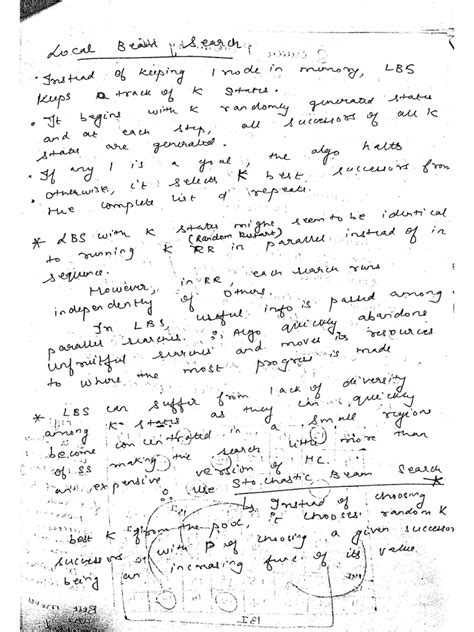 Local Beam Search
• Instead of keeping 1 node in memory, LBS
keeps a track of K states.
• It begins with K randomly generated states
and at each step, all successors of all K
states are generated.
• If any 1 is a goal, the algo halts
• Otherwise, it selects K best successors from
the complete list & repeats.
* LBS with K states might seem to be identical
to running K RR (Random Restart) in parallel instead of in
sequence.
However, in RR, each search runs
independently of others.
In LBS, useful info is passed among
parallel searches. ∴ Algo quickly abandons
unfruitful searches and moves its resources
to where the most progress is made
* LBS can suffer from lack of diversity
among K states as they can quickly
become concentrated in a small region
of SS making the search little more than
an expensive version of HC.
∴ Use Stochastic Beam Search *
↳ Instead of choosing
best K from the pool, it chooses random K
successors with P of choosing a given successor
being an increasing func of its value.